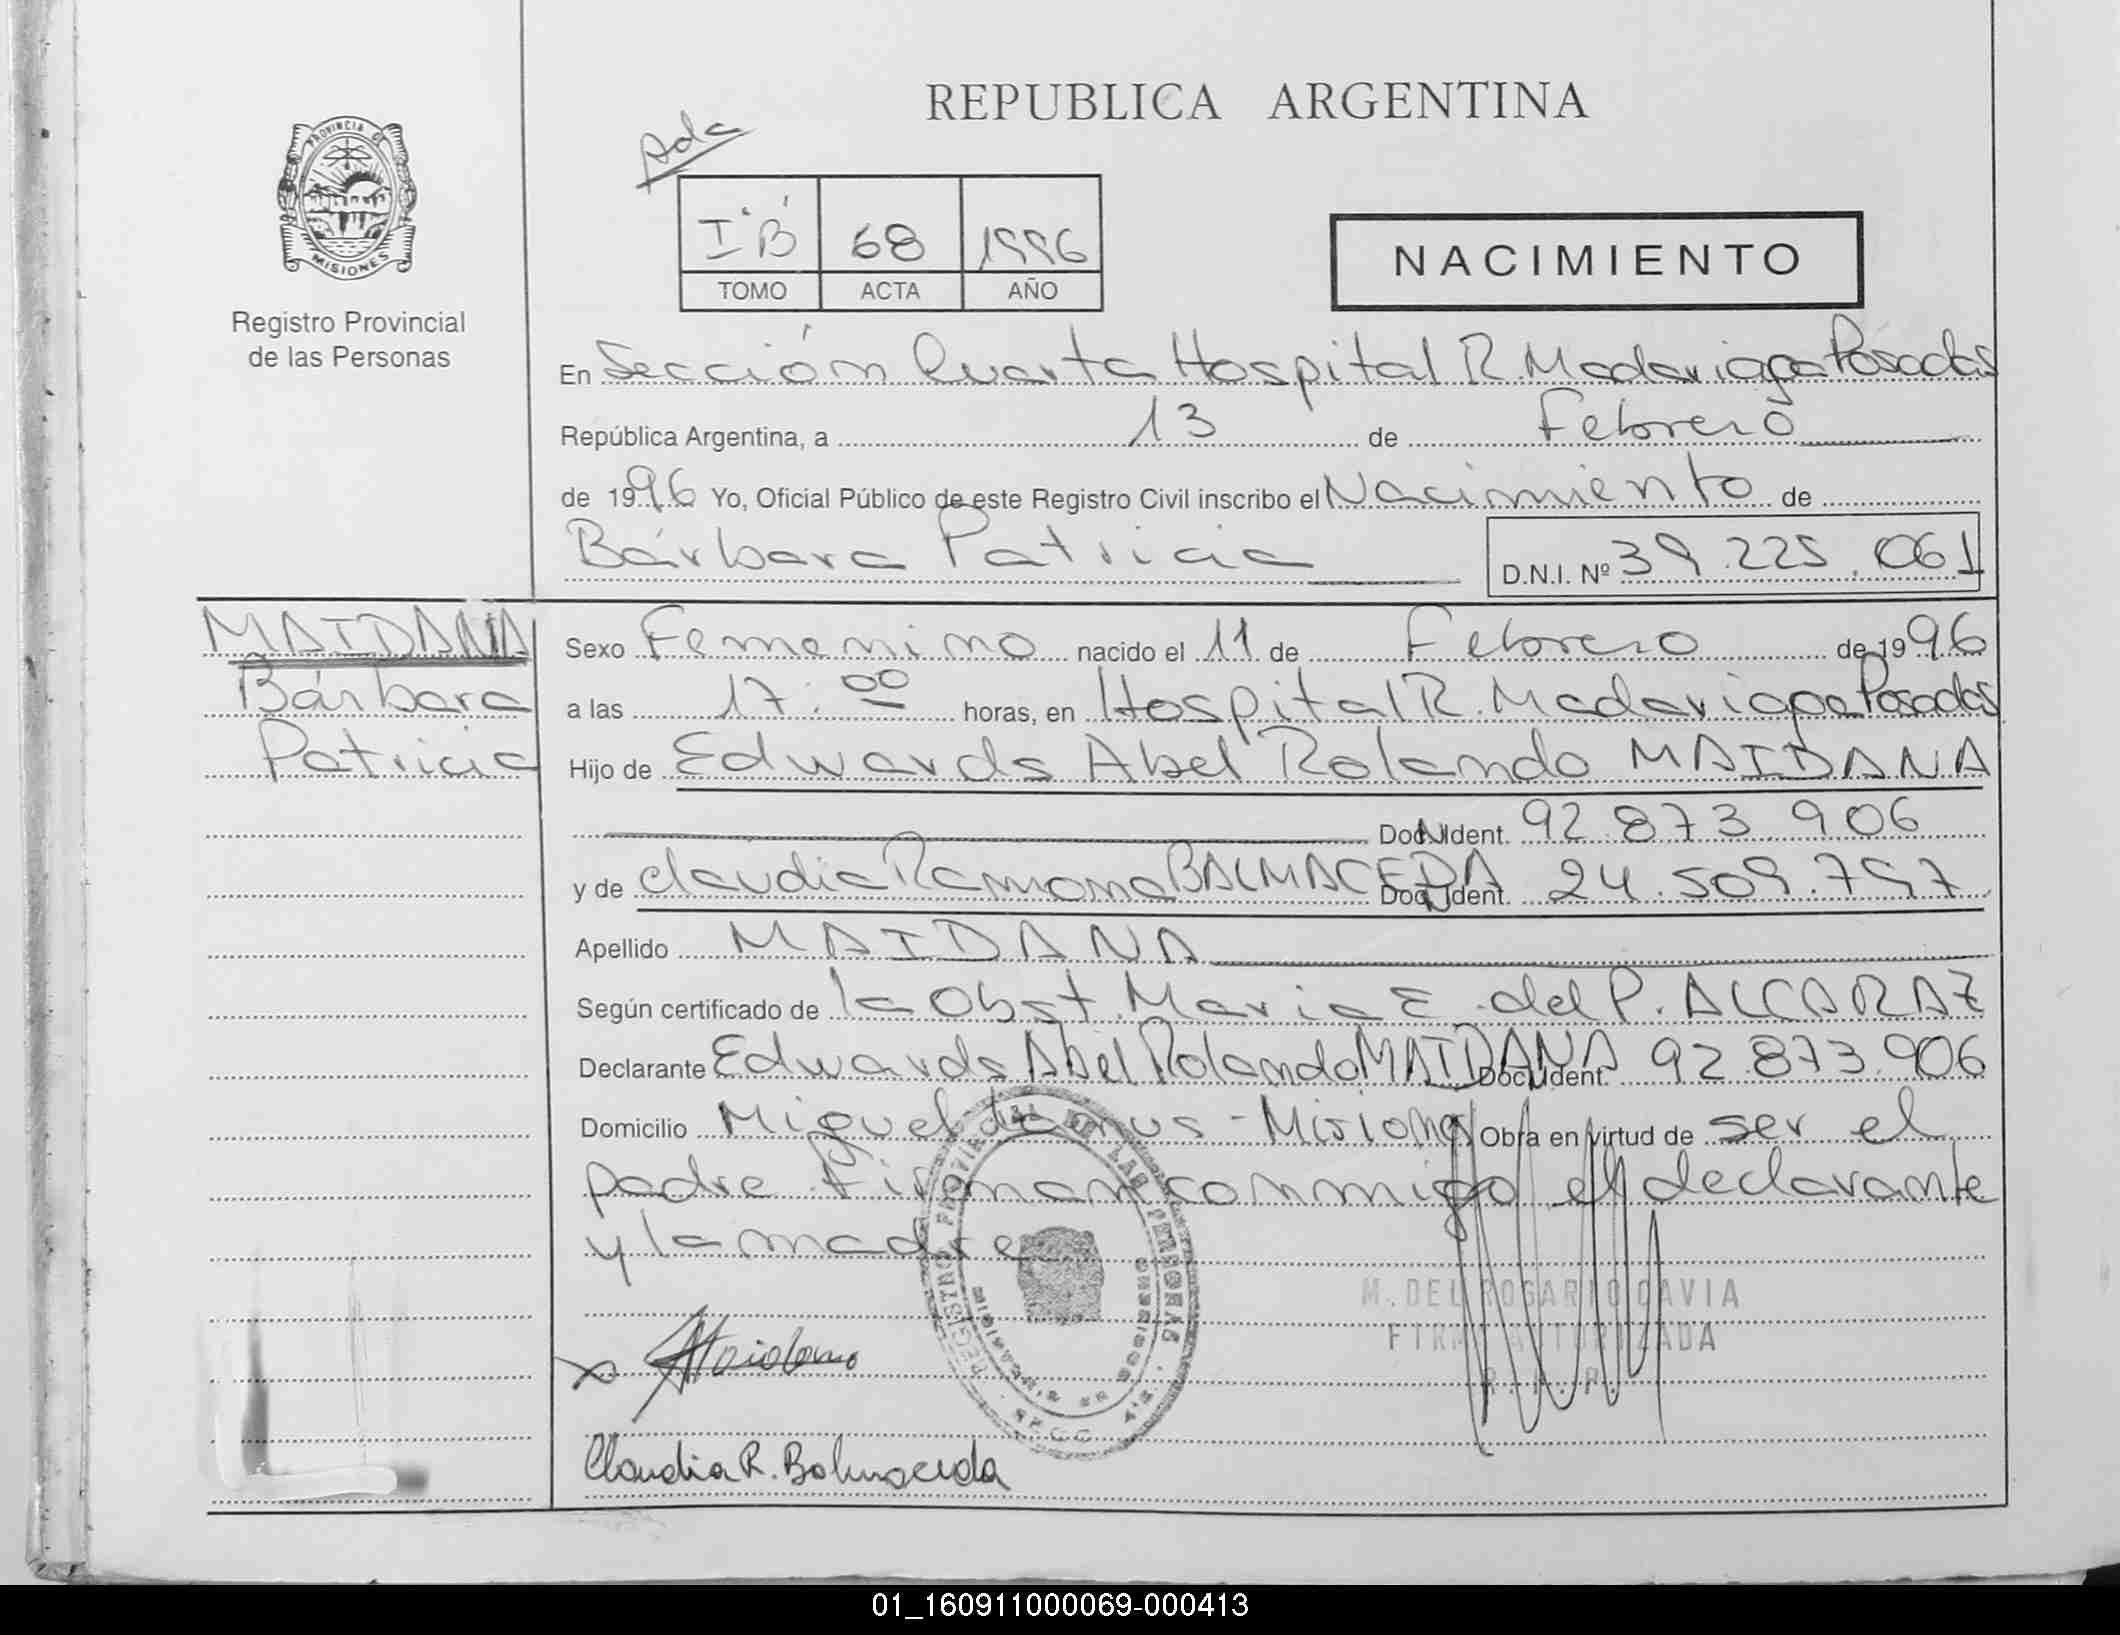 REPUBLICA ARGENTINA
PROVINCIA DE
MISIONES
Registro Provincial
de las Personas
I "B" 68 1996
TOMO ACTA AÑO
NACIMIENTO
En Sección Cuarta Hospital R. Madariaga Posadas
República Argentina, a 13 de Febrero
de 1996 Yo, Oficial Público de este Registro Civil inscribo el Nacimiento de
Bárbara Patricia D.N.I. Nº 39.225.061
MAIDANA
Bárbara
Patricia
Sexo Femenino nacido el 11 de Febrero de 1996
a las 17:00 horas, en Hospital R. Madariaga Posadas
Hijo de Edwards Abel Rolando MAIDANA
Doc. Ident. 92.873.906
y de Claudia Ramona BALMACEDA Doc. Ident. 24.509.757
Apellido MAIDANA
Según certificado de la Obst. Maria E. del P. ALCARAZ
Declarante Edwards Abel Rolando MAIDANA Doc. Ident. 92.873.906
Domicilio Miguel - Misiones Obra en virtud de ser el
padre. Firman conmigo el declarante
y la madre
REGISTRO PROVINCIAL DE LAS PERSONAS
M. DEL ROSARIO CAVIA
FIRMA AUTORIZADA
R. P. P.
Maidana
Claudia R. Balmaceda
01_160911000069-000413